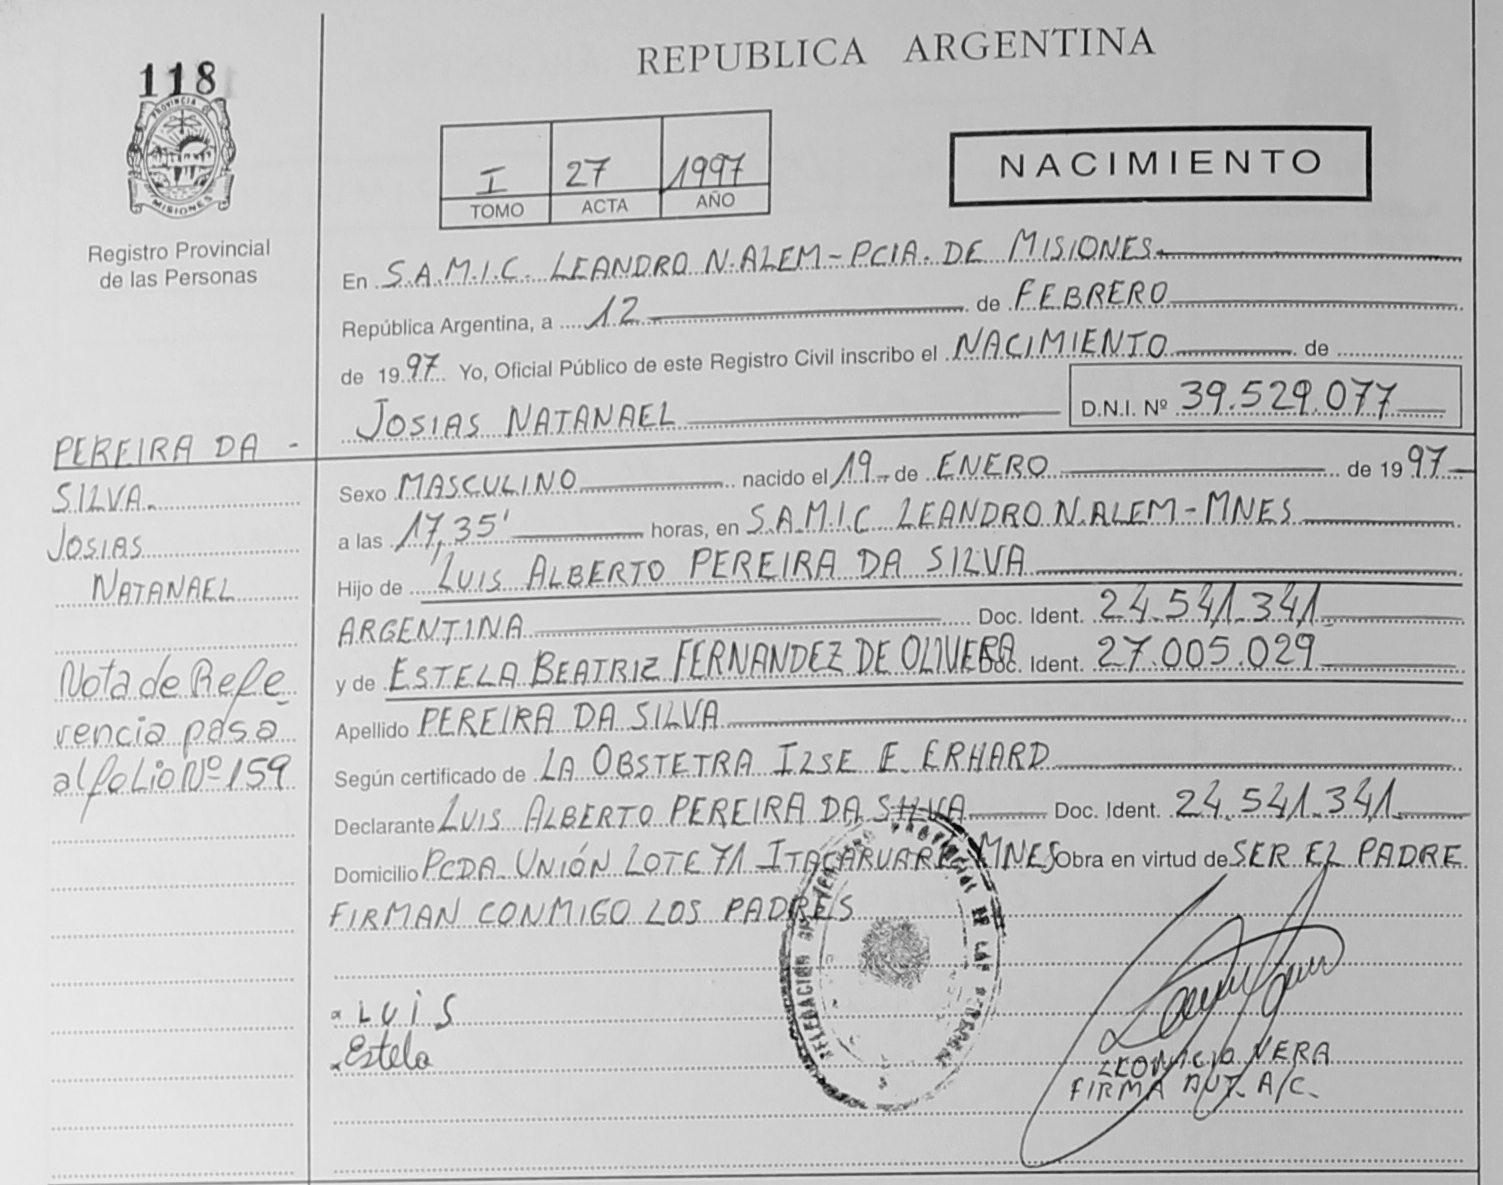 118
PROVINCIA DE
MISIONES
Registro Provincial
de las Personas
REPUBLICA ARGENTINA
I 27 1997
TOMO ACTA AÑO
NACIMIENTO
En S.A.M.I.C. LEANDRO N. ALEM - PCIA. DE MISIONES
República Argentina, a 12 de FEBRERO
de 1997 Yo, Oficial Público de este Registro Civil inscribo el NACIMIENTO de
JOSIAS NATANAEL D.N.I. Nº 39.529.077
PEREIRA DA -
SILVA.
JOSIAS
NATANAEL
Nota de Refe-
rencia pasa
al folio Nº 159
Sexo MASCULINO nacido el 19 de ENERO de 1997
a las 17,35' horas, en S.A.M.I.C LEANDRO N. ALEM - MNES
Hijo de LUIS ALBERTO PEREIRA DA SILVA
ARGENTINA Doc. Ident. 24.541.341
y de ESTELA BEATRIZ FERNANDEZ DE OLIVERA Doc. Ident. 27.005.029
Apellido PEREIRA DA SILVA
Según certificado de LA OBSTETRA ILSE E. ERHARD
Declarante LUIS ALBERTO PEREIRA DA SILVA Doc. Ident. 24.541.341
Domicilio PCDA UNIÓN LOTE 71 ITACARUARE MNES Obra en virtud de SER EL PADRE
FIRMAN CONMIGO LOS PADRES
LUIS
Estela
LEONICIO NERA
FIRMA AUT. A/C.